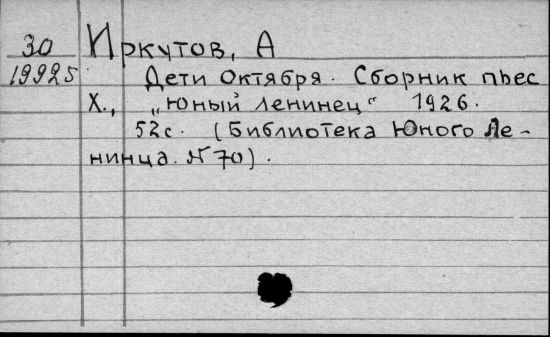 30 Иркутов, А
19925 Дети Октября. Сборник пьес
Х., „Юный ленинец“ 1926.
52с. (Библиотека Юного Ле-
нинца. №70).